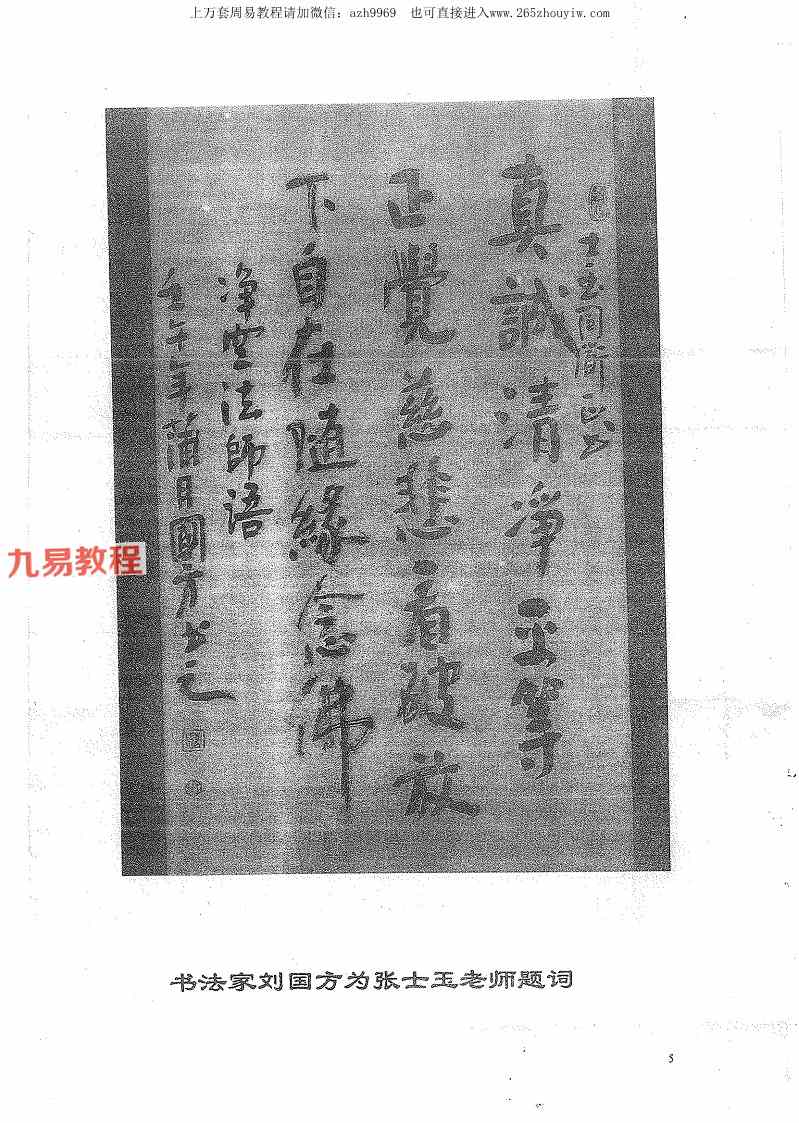 上万套周易教程请加微信：azh9969　也可直接进入www.265zhouyiw.com
士玉同脩正之
真誠清净平等
正覺慈悲看破放
下自在随緣念佛
净空法師语
壬午年蒲月國方书之
九易教程
书法家刘国方为张士玉老师题词
5